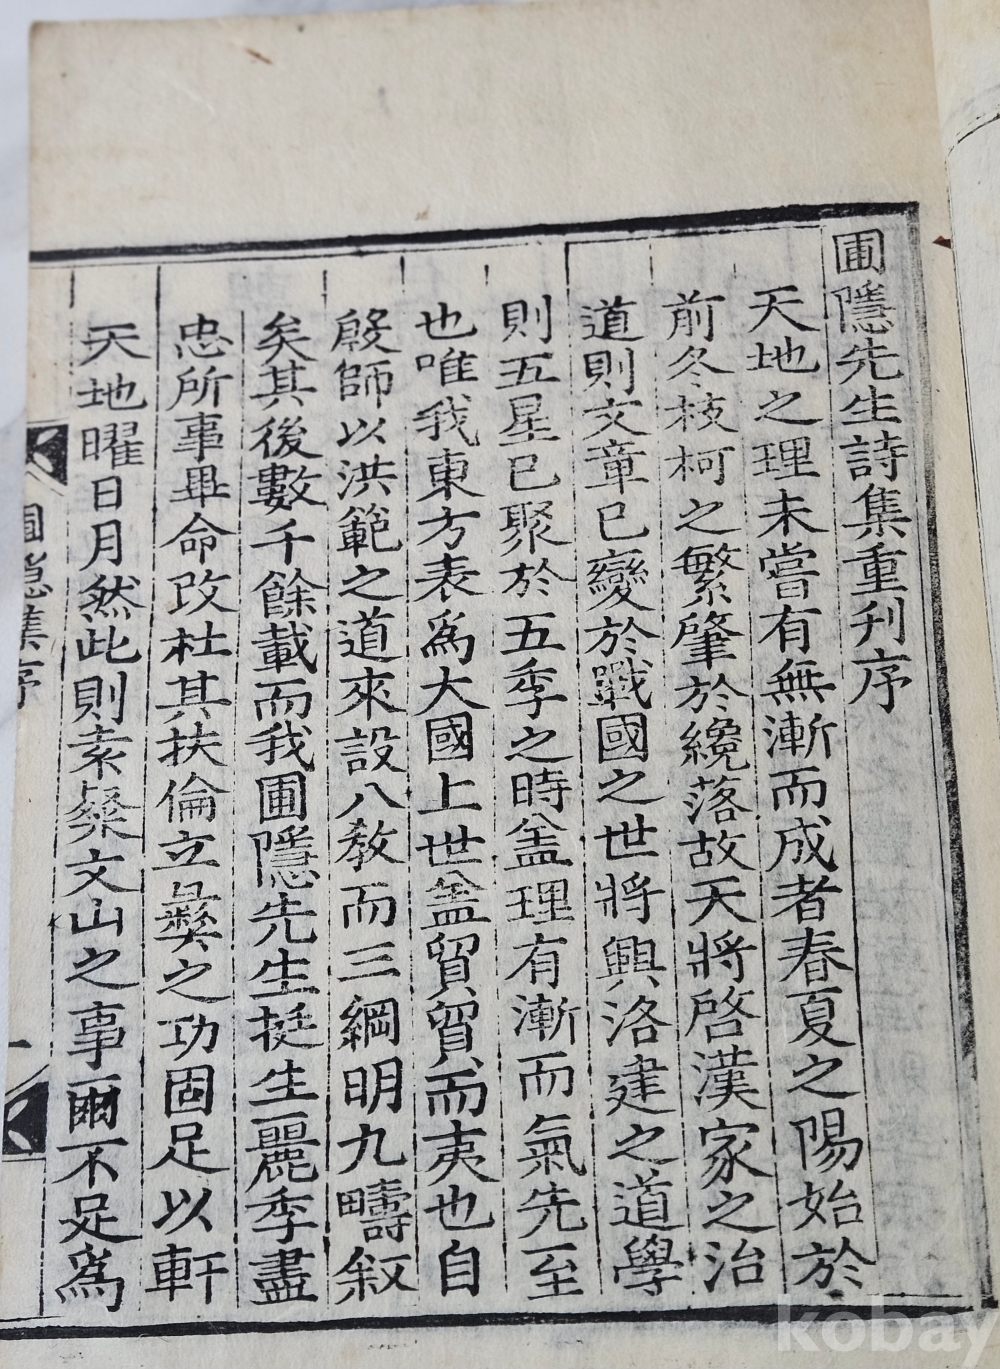 圃隱先生詩集重刊序
天地之理未嘗有無漸而成者春夏之陽始於
前冬枝柯之繁肇於纔落故天將啓漢家之治
道則文章已變於戰國之世將興洛建之道學
則五星已聚於五季之時盖理有漸而氣先至
也唯我東方表爲大國上世盖貿貿而夷也自
殷師以洪範之道來設八敎而三綱明九疇叙
矣其後數千餘載而我圃隱先生挺生麗季盡
忠所事畢命改杜其扶倫立彝之功固足以軒
天地曜日月然此則素粲文山之事爾不足爲
圃隱集序
一
kobay